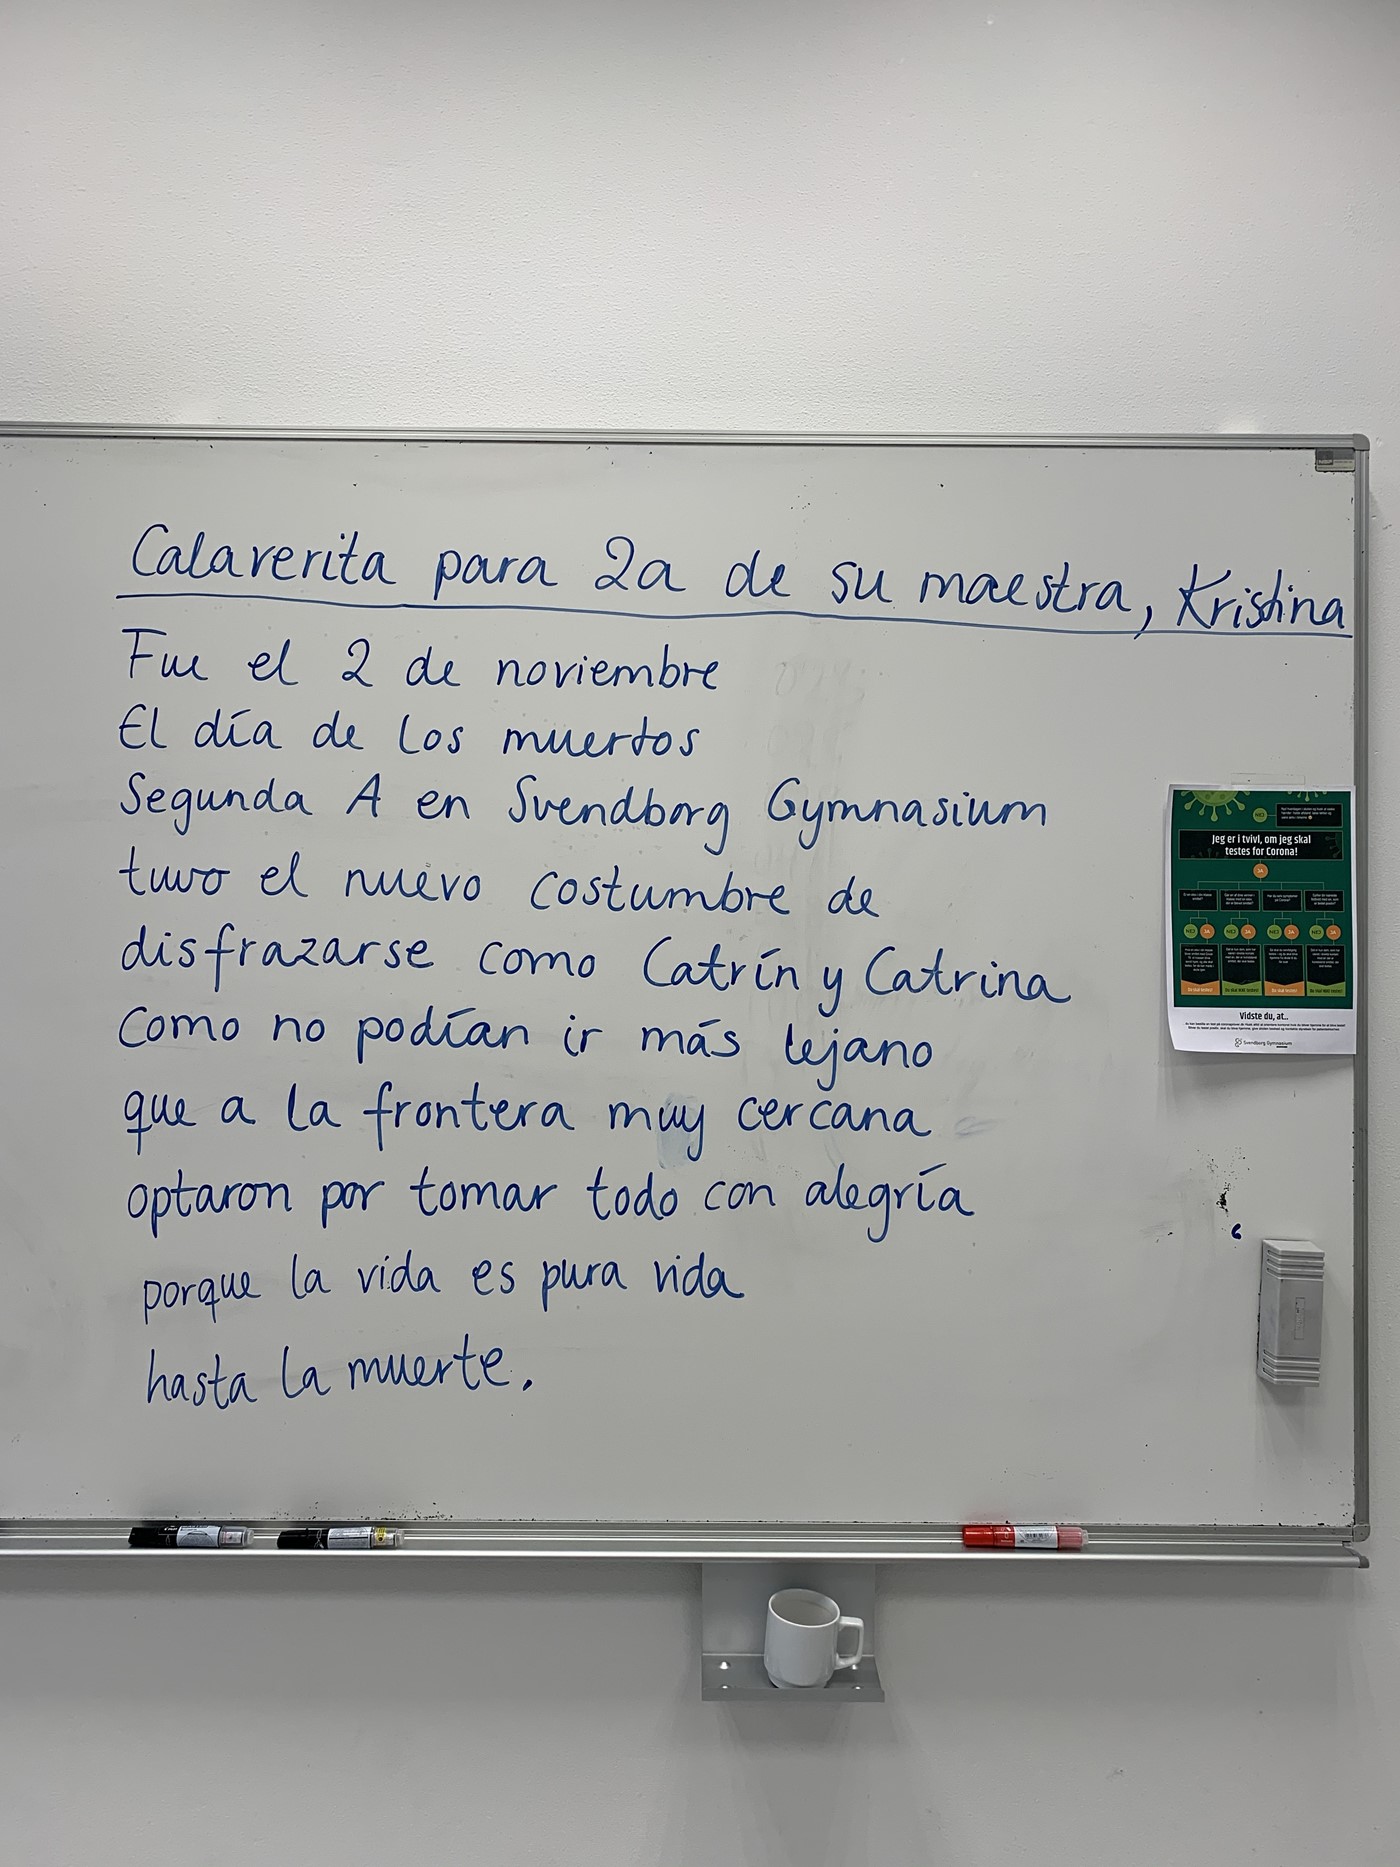 Calaverita para 2a de su maestra, Kristina
Fue el 2 de noviembre
El día de los muertos
Segunda A en Svendborg Gymnasium
tuvo el nuevo costumbre de
disfrazarse como Catrín y Catrina
Como no podían ir más lejano
que a la frontera muy cercana
optaron por tomar todo con alegría
porque la vida es pura vida
hasta la muerte.
NEJ
Jeg er i tvivl, om jeg skal
testes for Corona!
JA
NEJ JA NEJ JA NEJ JA NEJ JA
Du skal testes! Du skal IKKE testes! Du skal testes! Du skal IKKE testes!
Vidste du, at..
Svendborg Gymnasium